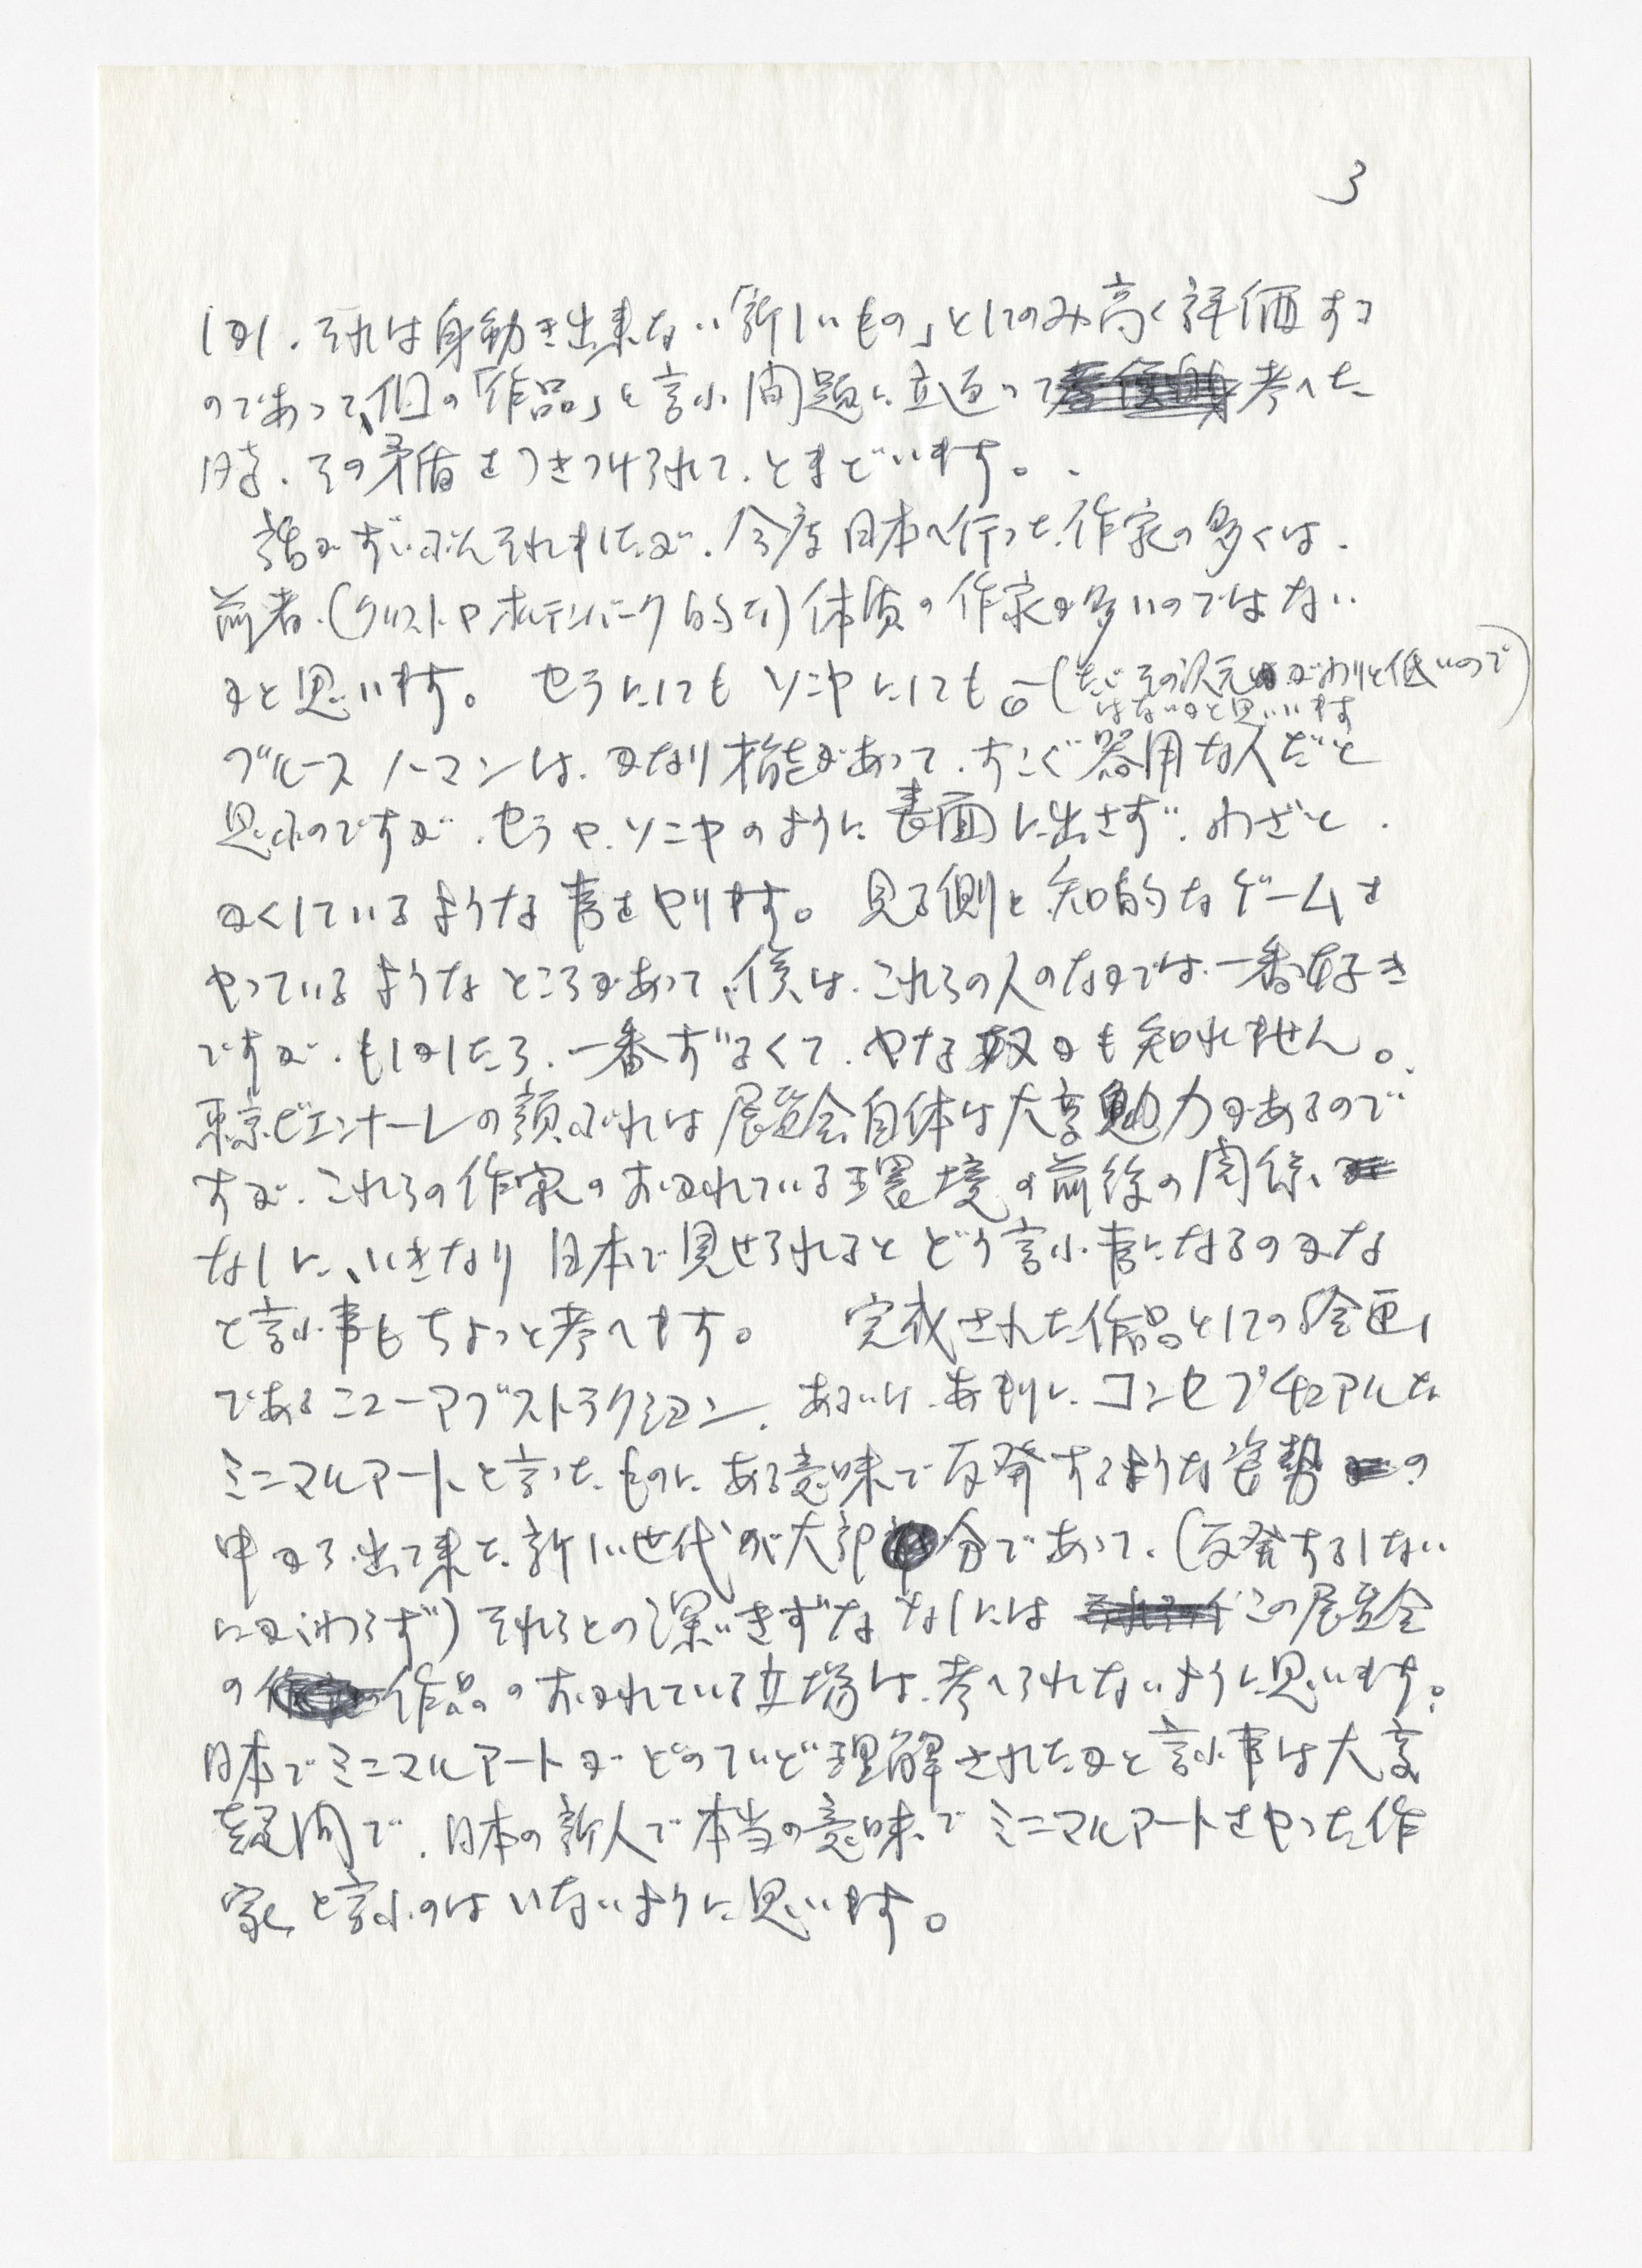 3
しかし、それは身動き出来ない「新しいもの」としてのみ高く評価する
のであって、個の「作品」と言ふ問題に立迫って考へた
時、その矛盾をつきつけられて、とまどいます。
話がずいぶんそれましたが、今度日本へ行った作家の多くは、
前者、(クリストやオルデンバーグ的な)体質の作家が多いのではない
かと思います。 セラにしてもソニヤにしても(ただその次元がわりと低いので
はないかと思います)
ブルースノーマンは、かなり才能があって、すごく器用な人だと
思ふのですが、セラや、ソニヤのように表面に出さず、わざと、
かくしているような事をやります。 見る側と知的なゲームを
やっているようなところがあって、僕は、これらの人のなかでは、一番好き
ですが、もしかしたら、一番ずるくて、やな奴かも知れません。
東京ビエンナーレの顔ぶれは展覧会自体は大変魅力があるので
すが、これらの作家のおかれている環境の前後の関係、
なしに、いきなり日本で見せられるとどう言ふ事になるのかな
と言ふ事もちょっと考へます。 完成された作品としての「絵画」
であるニューアブストラクション、あるいは、あまりに、コンセプチュアルな
ミニマルアートと言ったものに、ある意味で反発するような姿勢の
中から出て来た、新しい世代が大部分であって、(反発するしない
にかゝわらず)それらとの深いきずななしには この展覧会
の作品のおかれている立場は、考へられないように思います。
日本でミニマルアートがどのていど理解されたかと言ふ事は大変
疑問で、日本の新人で本当の意味でミニマルアートをやった作
家と言ふのはいないように思います。